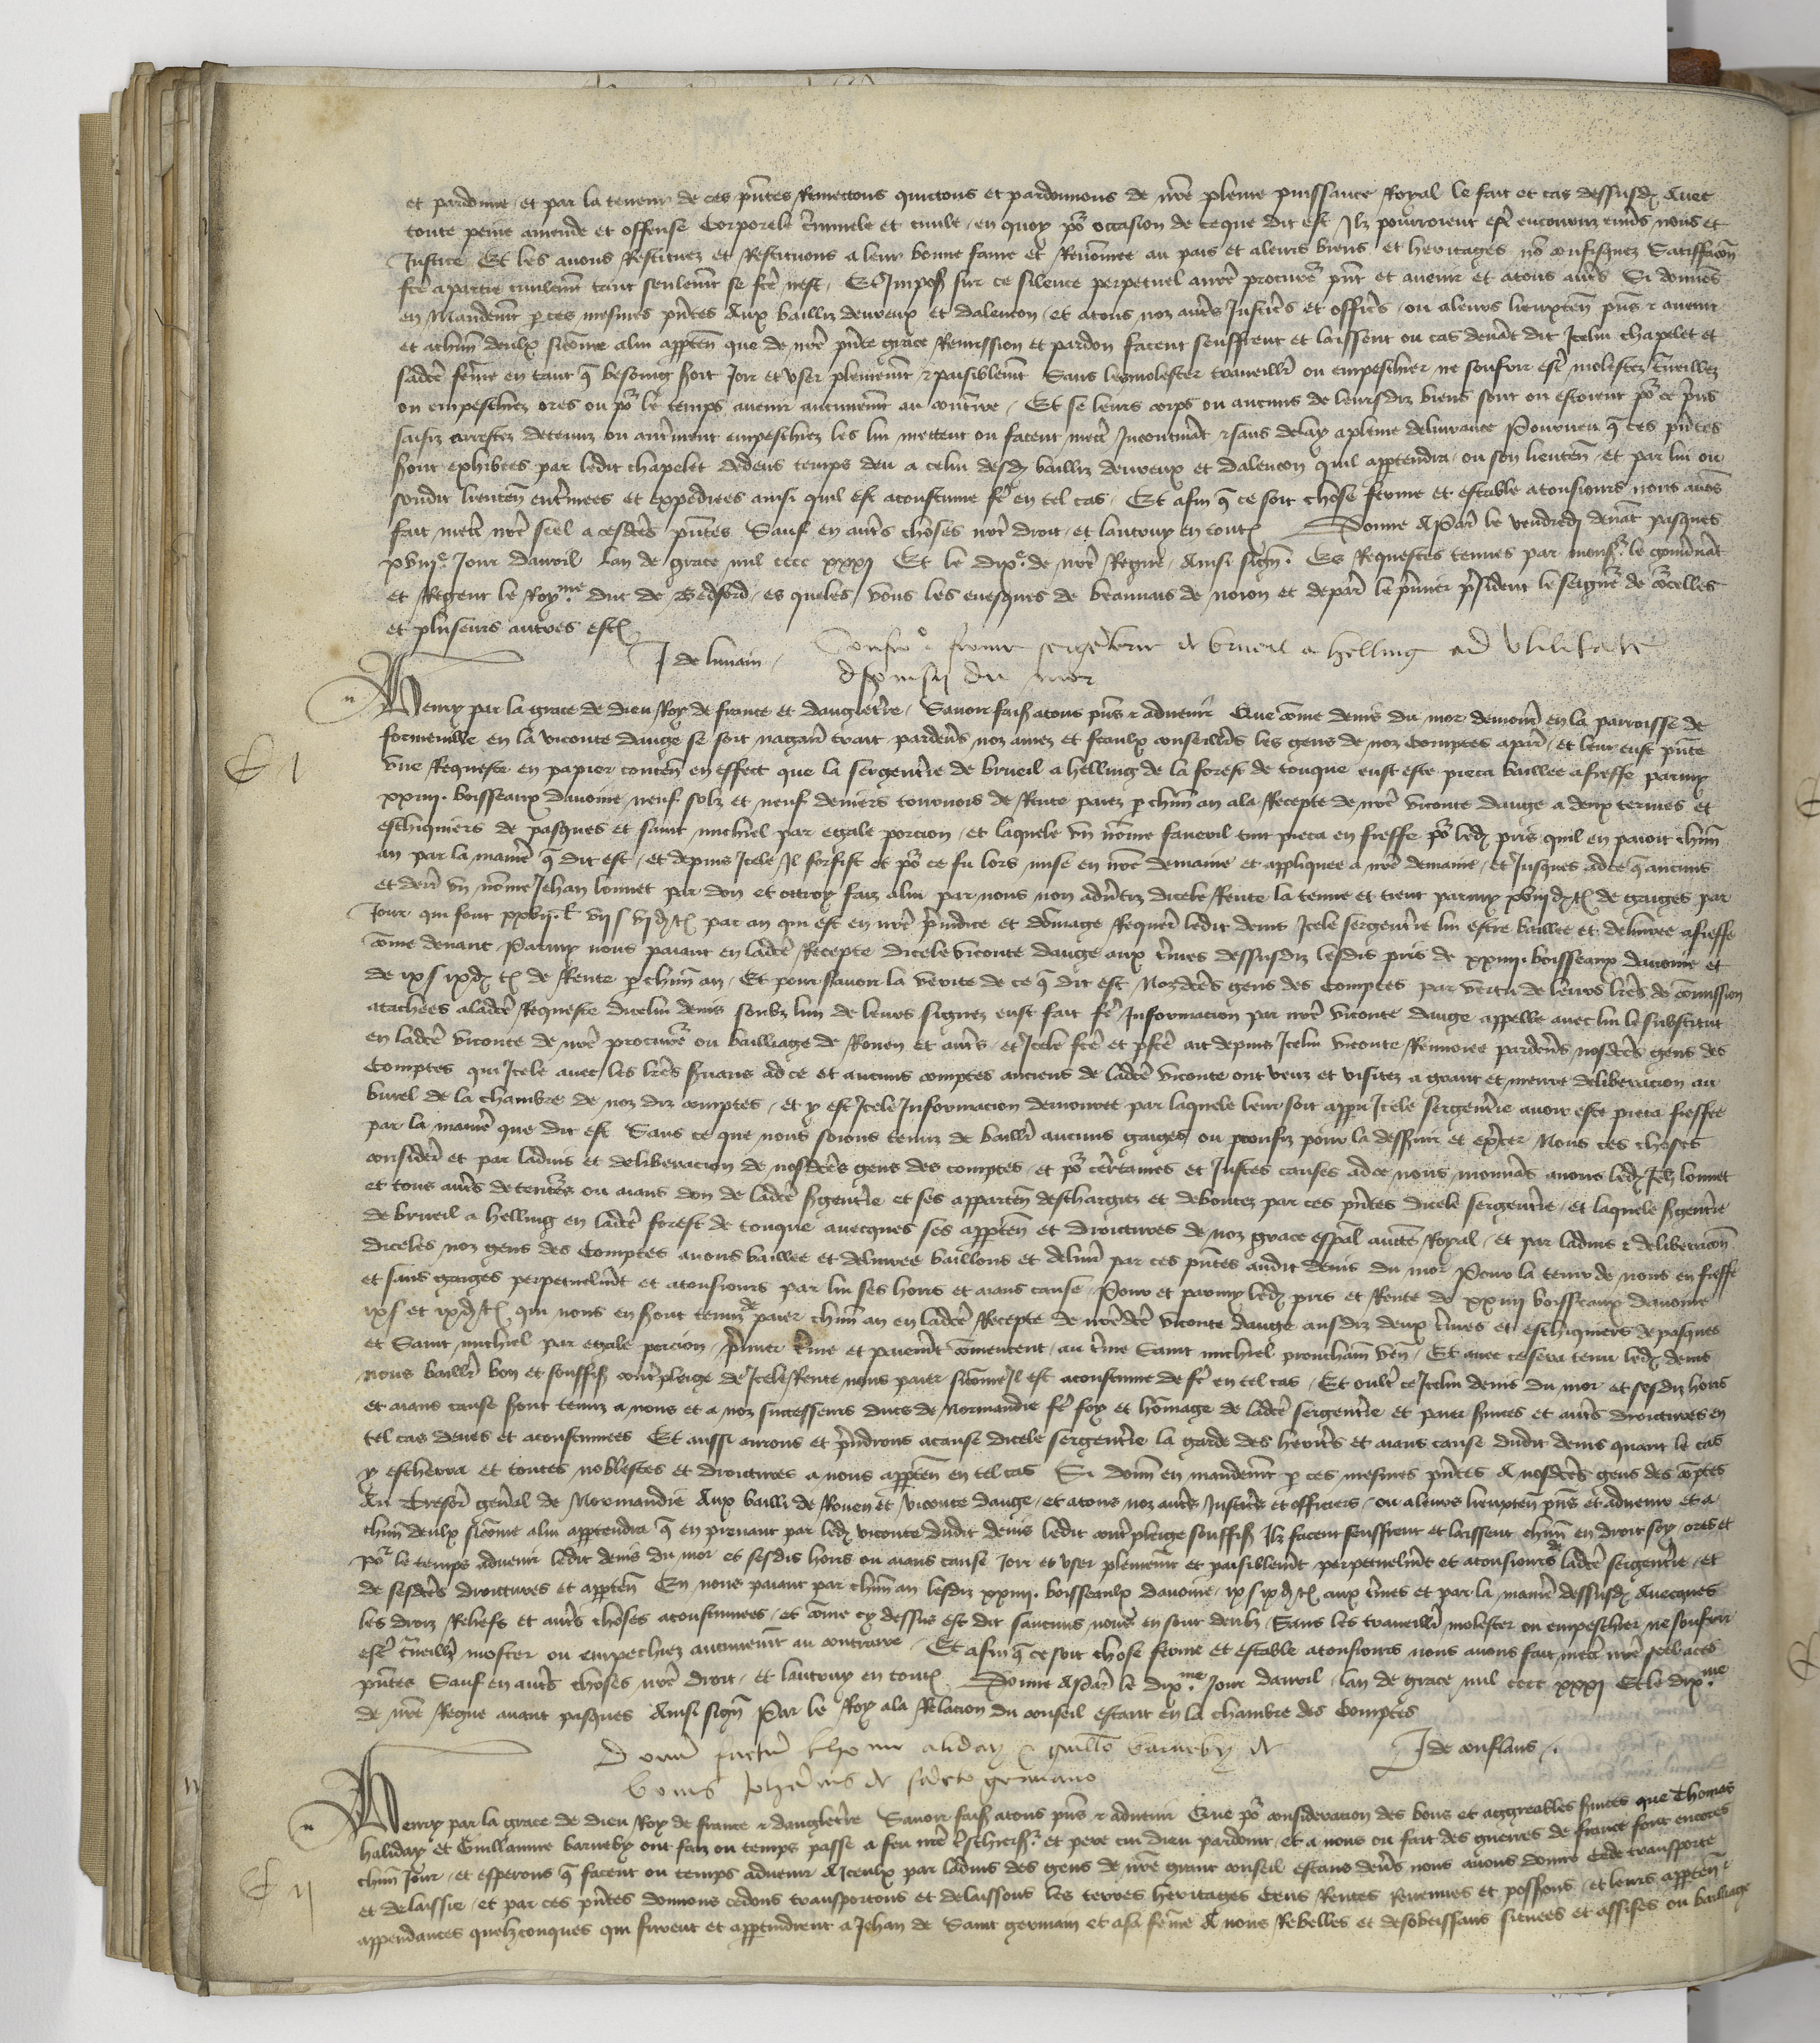 et pardonne et par la teneur de ces pñtes Remettons quictons et pardonnons de nre plaine puissance Royal le fait et cas dessusd Avec
toute peine amende et offense Corporele cimnele et civile en quoy por occasion de ceque dit est Ilz pourroient estre encouruz envers nous et
Justice Et les avons Restituez et Restituons a leur bonne fame et Renomee au pais et aleurs biens et heritages no confisquez Satisfacon
fce a partie civilemt tant seulemt se fce nest Et Imposons sur ce silence perpetuel anre procureur pnt et avenir et atous autres Si donnos
en Mandemt p ces mesmes pntes Aux bailliz devreux et dalencon et atous noz autres Justiciers et officiers ou aleurs lieuxten pns et avenir
et achun deulx sicome alui appten que de nre pnte grace Remission et pardon facent seuffrent et laissent ou cas devat dit Icelui chapelet et
sadce feme en tant q besoing soit Joir et user plainemt et paisiblemt Sans les molester travaillier ou empeschier ne souffrir estre molestez traveillez
ou empeschiez ores ou por le temps avenir aucunemt au contraire Et se leurs corps ou aucuns de leursdiz biens sont ou estoient por ce prins
saisiz arrestez detenuz ou autrement empeschiez les lui mettent ou facent mectre Incontinat et sans delay a plaine delivrance Pourveu q ces pntes
soient exhibees par ledit chapelet dedens temps deu a celui desd bailliz devreux et dalencon quil apptendra ou son lieuten et par lui ou
sondit lieuten enterinees et expediees ainsi quil est acoustume fe en tel cas Et afin q ce soit chose ferme et estable atousiours nous avos
fait mectre nre seel a cesdces pntes Sauf en autres choses nre droit et lautruy en toutes Donne A Paris le vendredi devat pasques
xviije Jour davril lan de grace mil cccc xxxj Et le dixe de nre Regne Ainsi signe Es Requestes tenues par monsr le gouvernat
et Regent le Royme duc de Bedford es queles vous les evesques de beauvais de noion et de paris le premier president le seigneur de Coucelles
et pluseurs autres estiez
J de lunain Confir feoure sergeterie de brueil a helling ad utilitate
dyonisii du mor
Henry par la grace de dieu Roy de france et dangleterre Savoir faiss atous pns et advenir Que come denis du mor demour en la parroisse de
formeville en la viconte dauge se soit nagaire trait pardevers noz amez et feaulx conseilliers les gens de noz Comptes aparis et leur eust pnte
une Requeste en papier conten en effect que la sergenterie de brueil a helling de la forest de touque eust este pieca baillee afieffe parmy
xxiiij boisseaux davoine neuf solz et neuf deniers tournois de Rente paiez p chun an ala Recepte de nre viconte dauge a deux termes et
eschiquiers de pasques et saint michiel par egale porcion et laquele un nome fauevil tint pieca en fieffe por led pris quil en paioit chun
an par la maniere q dit est et depuis Icele Il forfist et por ce fu lors mise en nre demaine et appliquee a nre demaine et Jusques adce q aucuns
et dernier un nome Jehan lonnet par don et ottroy faiz alui par nous non advertiz dicele Rente la tenue et tient parmy xviij d t de gaiges par
Jour qui font xxvij l vij s vj d t par an qui est en nre preiudice et domage Requer ledit denis Icele sergenterie lui estre baillee et delivree afieffe
come devant Parmy nous paiant en ladce Recepte dicele viconte dauge aux termes dessusdiz lesdis pris de xxiiij boisseaux davoine et
de ix s ix d t de Rente p chun an Et pour savoir la verite de ce q dit est Nosdces gens des Comptes par vertu de leurs lres de comission
atachees aladce Requeste dicelui denis soubz lun de leurs signez eust fait fe Informacion par nre viconte dauge appelle avec lui le substitut
en ladce viconte de nre procureur ou bailliage de Rouen et autres et Icele fce et pfce ait depuis Icelui viconte Renvoiee pardevers nosdces gens des
Comptes qui Icele avec les lres servans ad ce et aucuns comptes anciens de ladce viconte ont veuz et visitez a grant et meure deliberacion au
burel de la chambre de noz diz comptes et y est Icele Informacion demouree par laquele leur soit appu Icele sergenterie avoir este pieca fieffee
par la maniere que dit est Sans ce que nous soions tenuz de baillier aucuns gaiges ou proufiz pour la desservir et exercer Nous ces choses
consider et par ladvis et deliberacion de nosdces gens des comptes et por certaines et Justes causes adce nous mouvas avons led Jeh lonnet
et tous autres detenteurs ou aians don de ladce sgenterie et ses apparten deschargez et deboutez par ces pntes dicele sergenterie et laquele sgenterie
de brueil a helling en ladce forest de touque avecques ses appten et droictures de noz grace espal aucte Royal et par ladvis et deliberacon
diceles noz gens des Comptes avons baillee et delivree baillons et delivr par ces pntes audit denis du mor Pour la tenir de nous en fieffe
et sans gaiges perpetuelmt et atousiours par lui ses hoirs et aians cause Pour et parmy led pris et Rente de xxiiij boisseaux davoine
ix s et ix d t qui nous en sont tenuz de paier chun an en ladce Recepte de nredce viconte dauge ausdiz deux termes et eschiquiers de pasques
et Saint michiel par egale porcion premier terme et paiemt comencent au terme Saint michiel prouchain ven Et avec ce sera tenu led denis
nous baillier bon et souffiss contrepleige de Icele Rente nous paier sicome Il est acoustume de fe en tel cas Et oultre ce Icelui denis du mor et sesdiz hoirs
et aians cause sont tenuz a nous et a noz successeurs ducs de Normandie fe foy et homage de ladce sergenterie et paier sentes et autres droictures en
tel cas deues et acoustumees Et aussi aurons et prendrons acause dicele sergenterie la garde des heritiers et aians cause dudit denis quant le cas
y escherra et toutes noblesses et droictures a nous appten en tel cas Si donn en mandemt p ces mesmes pntes A nosdces gens des comptes
Au Tresorier general de Normandie Aux bailli de Rouen et viconte dauge et atous noz autres Justiciers et officiers ou aleurs lieuxten pns et advenir et a
chun deulx sicome alui apptendra q en prenant par led viconte dudit denis ledit contrepleige souffiss Ilz facent seuffrent et laissent chun en droit soy ores et
por le temps advenir ledit denis du mor et sesdis hoirs ou aians cause Joir et user plainemt et paisiblemt perpetuelmt et atousiours de ladce sergenterie et
de sesdces droictures et appten En nous paiant par chun an lesdiz xxiiij boisseaulx davoine ix s ix d t aux termes et par la maniere dessusd Avecques
les droiz Reliefs et autres choses acoustumees et come cy dessus est dit saucuns nous en sont deubz Sans les traveillier molester ou empeschier ne souffrir
estre traveillier moster ou empechiez aucunemt au contraire Et afin q ce soit chose ferme et estable atousiours nous avons fait mectre nre seel a ces
pntes Sauf en autres choses nre droit et lautruy en toutes Donne A Paris le dixme Jour davril lan de grace mil cccc xxxj Et le dixme
de nre Regne avant pasques Ainsi signe Par le Roy ala Relacion du conseil estant en la chambre des Comptes
J de conflans
Donum factum thome aliday et guillo barneby de
bonis Johannis de sancto germano
Henry par la grace de dieu Roy de france et dangleterre Savoir faiss atous pns et advenir Que por consideracion des bons et aggreables services que Thomas
haliday et Guillaume barneby ont faiz ou temps passe a feu nre treschier sr et pere cui dieu pardoint et a nous ou fait des guerres de france font encores
chun Jour et esperons q facent ou temps advenir A Iceulx par ladvis des gens de nre grant conseil estans devers nous avons donne cede transporte
et delaissie et par ces pntes donnons cedons transportons et delaissons les terres heritages Cens Rentes Revenues et possessions et leurs appten
appendances quelzconques qui furent et appendirent a Jehan de Saint germain et asa feme A nous Rebelles et desobeissans situees et assises ou bailliage